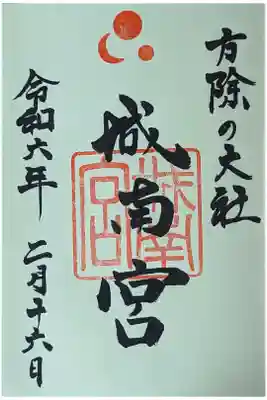 方除の大社
城南宮
城南宮印
令和六年 二月十六日